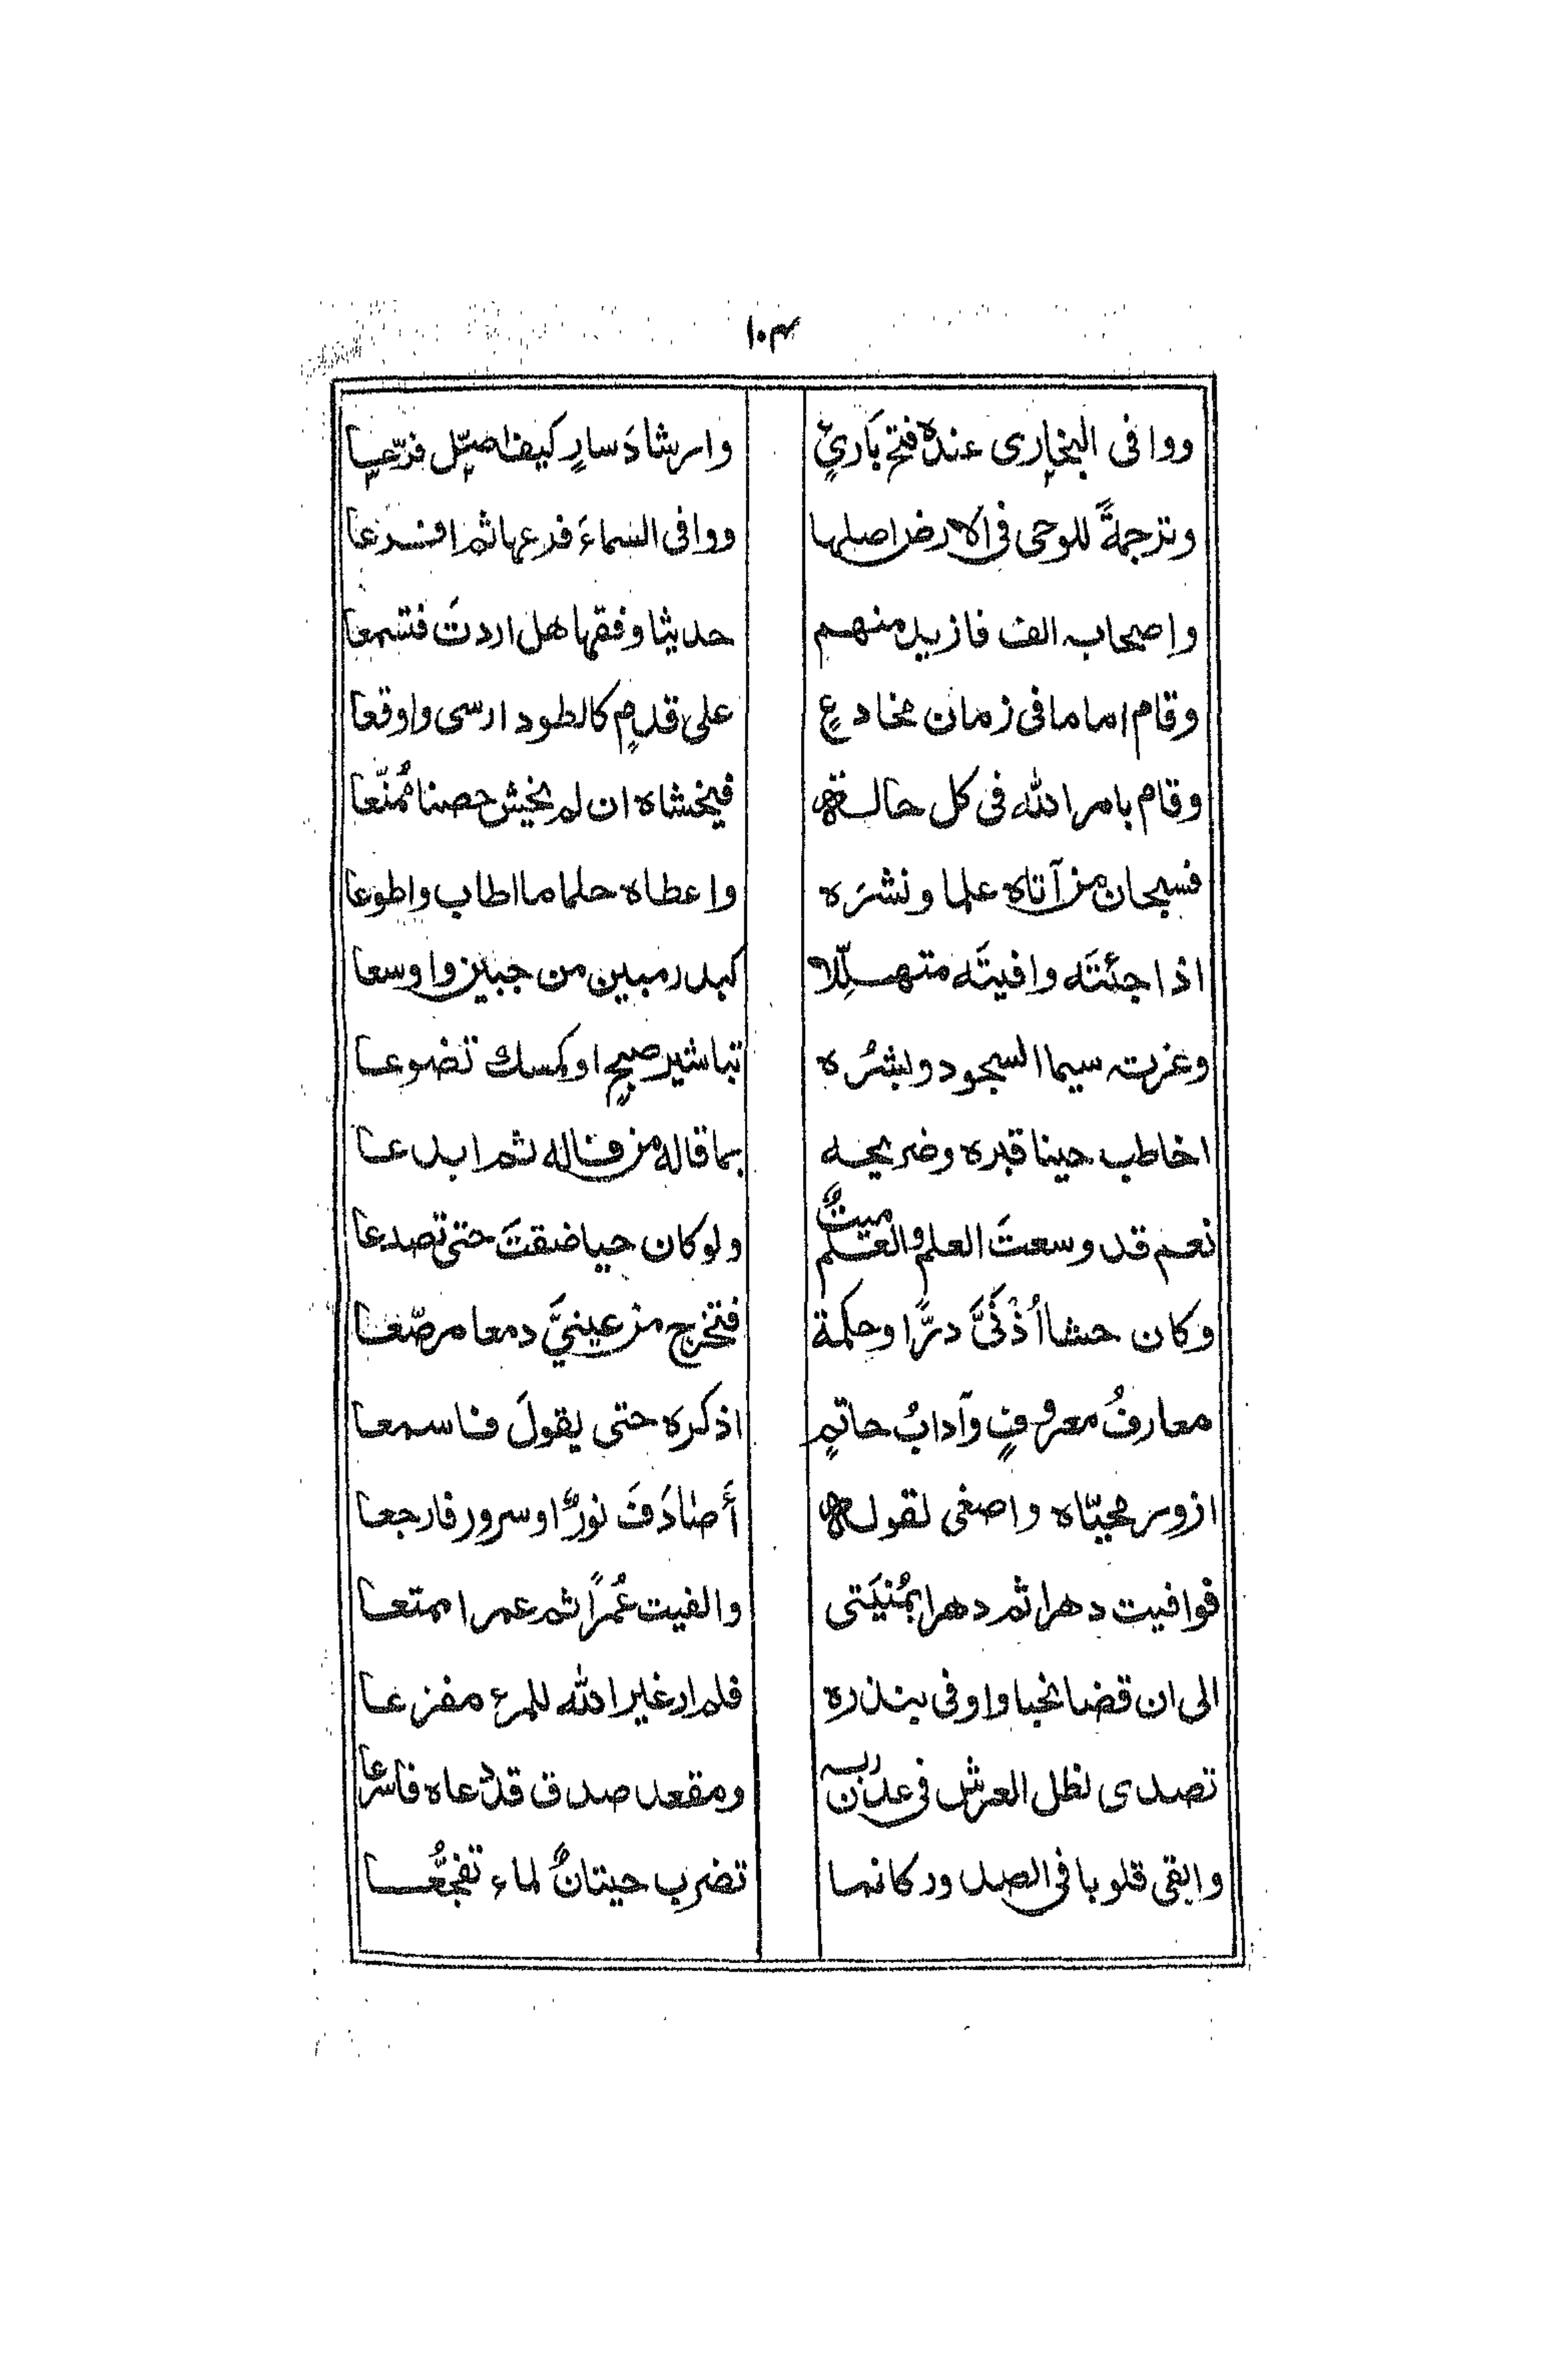 ١٠٣
ووافى البخارى عنده فتح بَارئٍ وارشادَ سارٍ كيف اصّل فرّعا
وترجمةً للوحى فى الارض اصلها ووافى السماءَ فرعها ثم افرعا
واصحاب الف فازيد منهم حديثا وفقها هل اردتَ فتسمعا
وقام اماما فى زمان مخادعٍ على قدمٍ كالطود ارسى واوقعا
وقام بامر الله فى كل حالة فيخشاه ان لم يخش حصنا مُمنّعا
فسبحان من آتاه علما ونشرَه واعطاه حلما ما اطاب واطوعا
اذا جئتَه وافيتَه متهلِّلا كبدر مبين من جبين واوسعا
وغرت سيما السجود وبشرُه تباشير صبحٍ او كمسك تضوعا
اخاطب حينا قبره وضريحه بما قاله من قاله ثم ابدعا
نعم قد وسعتَ العلم والعلم ميتٌ ولو كان حيا ضقتَ حتى تصدعا
وكان حشا اُذْنَىَّ درًّا وحكمة فتخرج من عينيَّ دمعا مرصّعا
معارفُ معروفٍ وآدابُ حاتمٍ اذكره حتى يقولَ فاسمعا
ازور محيّاه واصغى لقوله أَصَادَفَ نورٌ او سرور فارجعا
فوافيت دهرا ثم دهرا بمُنيَتى والفيت عُمرًا ثم عمرا ممتعا
الى ان قضا نحبا واوفى بنذره فلم ار غير الله للمرء مفزعا
تصدى لظل العرش فى عدن ربه ومقعد صدق قد دعاه فاسرعا
والقى قلوبا فى الصدور كانها تضرب حيتانٌ لماء تفجُّعا